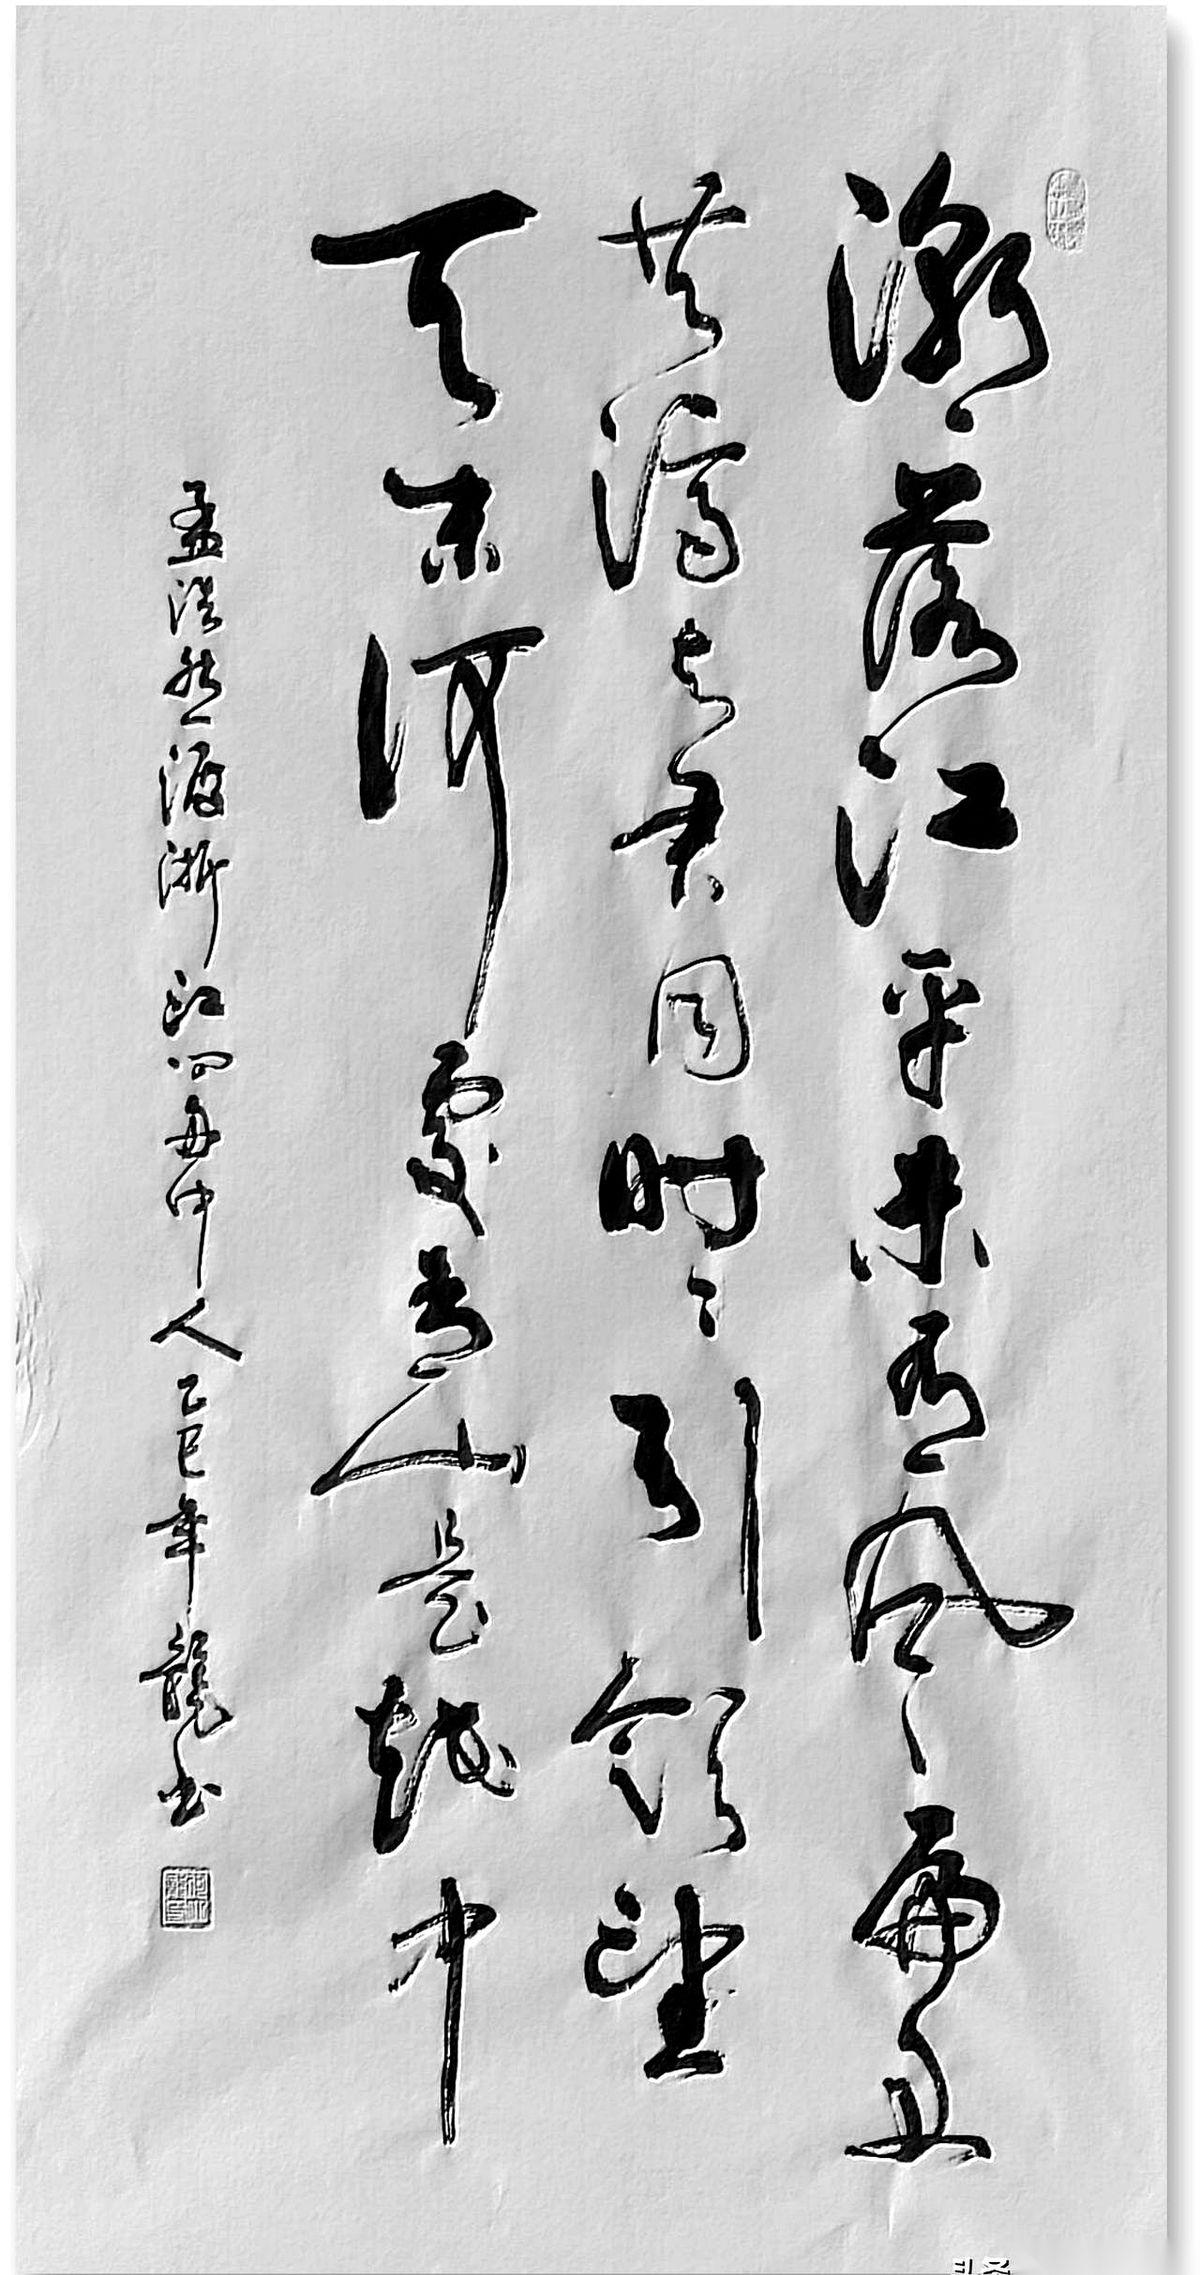 潮落江平未有风扁舟
共濟与君同時々引領望
天末何處青山是越中
孟浩然渡浙江问舟中人乙巳年龍书